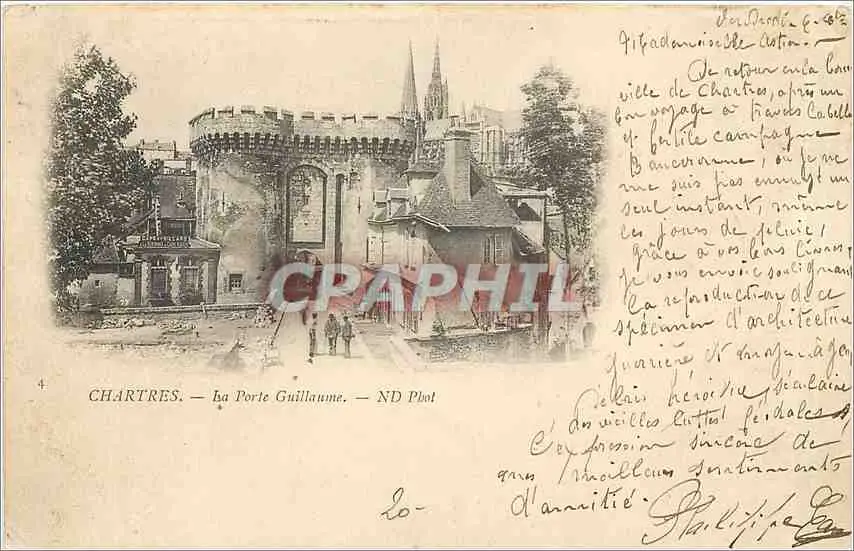 Mademoiselle
De retour en la bonne
ville de Chartres, après un
bon voyage à travers la belle
et fertile campagne
Beauceronne, où je ne
me suis pas ennuyé un
seul instant, même
les jours de pluie,
grâce à vos bons livres,
je vous envoie soulignant
la reproduction de ce
spécimen d'architecture
guerrière et moyen âgeu
héroïque, séculaire
des vieilles luttes féodales,
l'expression sincère de
mes meilleurs sentiments
d'amitié.
Philippe
20-
CAFE
CRAPHIL
4
CHARTRES. — La Porte Guillaume. — ND Phot